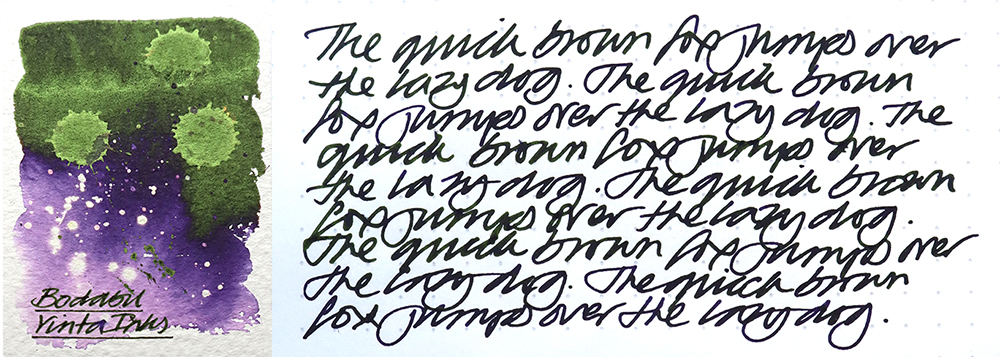 Bodabil
Vinta Inks
The quick brown fox jumps over
the lazy dog. The quick brown
fox jumps over the lazy dog. The
quick brown fox jumps over
the lazy dog. The quick brown
fox jumps over the lazy dog.
The quick brown fox jumps over
the lazy dog. The quick brown
fox jumps over the lazy dog.